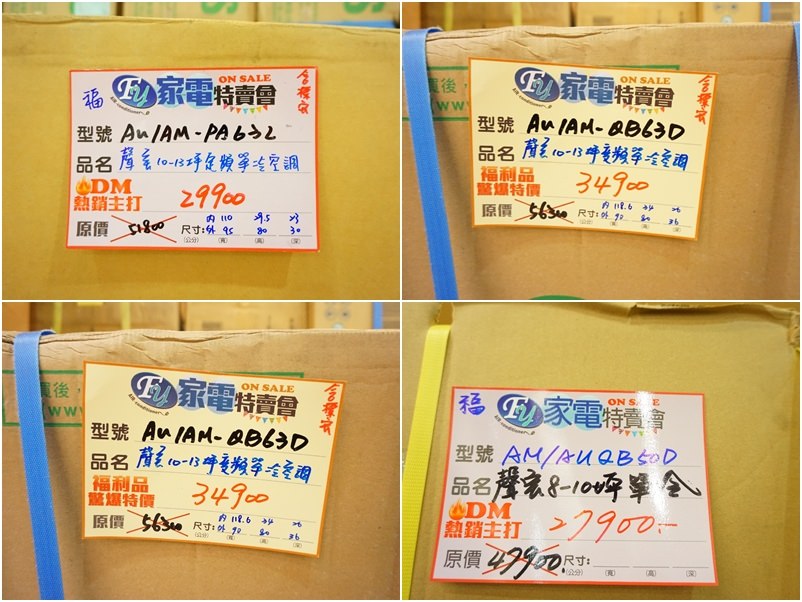 ON SALE
福
FU 家電特賣會
含標安
air conditioner
型號 AU/AM-PA632
品名 聲寶10-13坪定頻單冷空調
DM
熱銷主打
29900
原價 51800
尺寸: 內 110 29.5 23
外 95 80 30
(公分) (寬) (高) (深)
買後,
ON SALE
FU 家電特賣會
含標安
air conditioner
型號 AU/AM-QB63D
品名 聲寶10-13坪變頻單冷空調
福利品
驚爆特價
34900
原價 56300
尺寸: 內 118.6 34 26
外 90 80 36
(公分) (寬) (高) (深)
買後,
www.
ON SALE
FU 家電特賣會
含標安
air conditioner
型號 AU/AM-QB63D
品名 聲寶10-13坪變頻單冷空調
福利品
驚爆特價
34900
原價 56300
尺寸: 內 118.6 34 26
外 90 80 36
(公分) (寬) (高) (深)
ON SALE
福
FU 家電特賣會
air conditioner
型號 AM/AUQB50D
品名 聲寶8-10坪單冷
DM
熱銷主打
27900.-
原價 47900.
尺寸:
(公分) (寬) (高) (深)